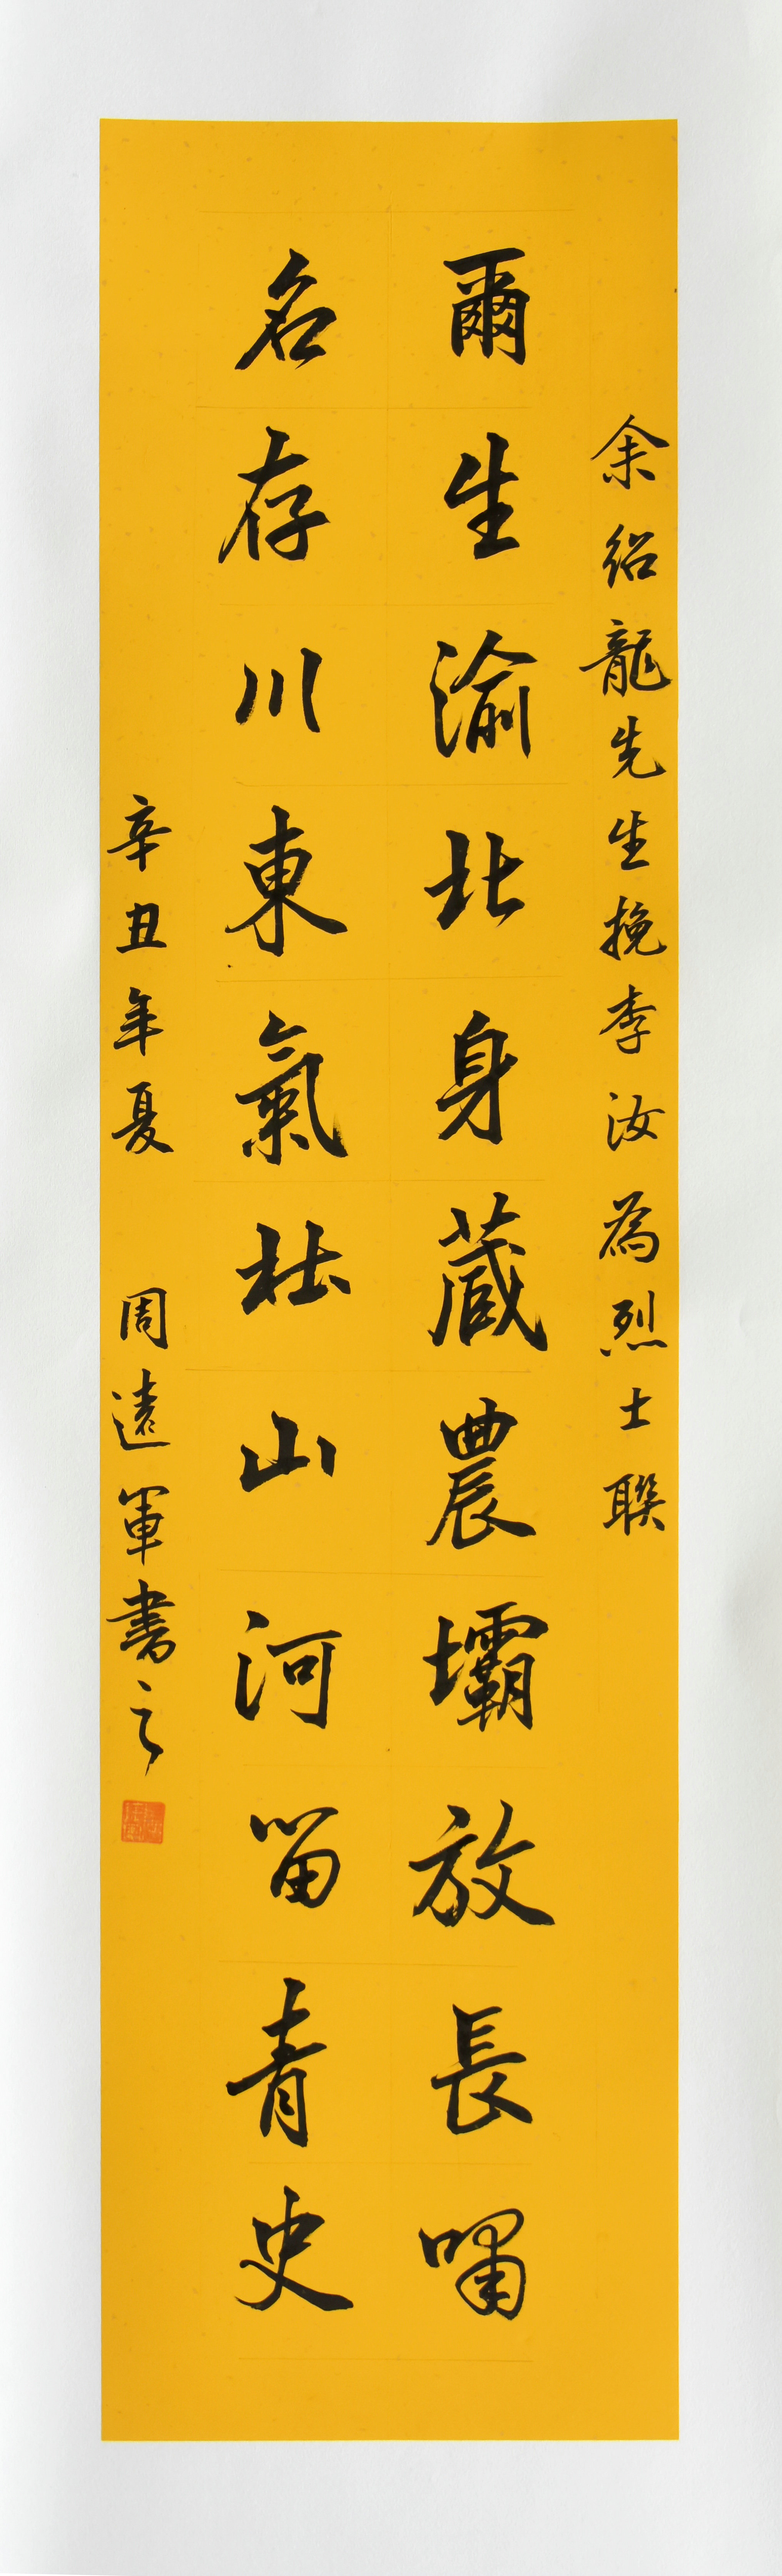 余紹龍先生挽李汝為烈士聯
爾生渝北身藏農壩放長嘯
名存川東氣壯山河留青史
辛丑年夏 周遠軍書之